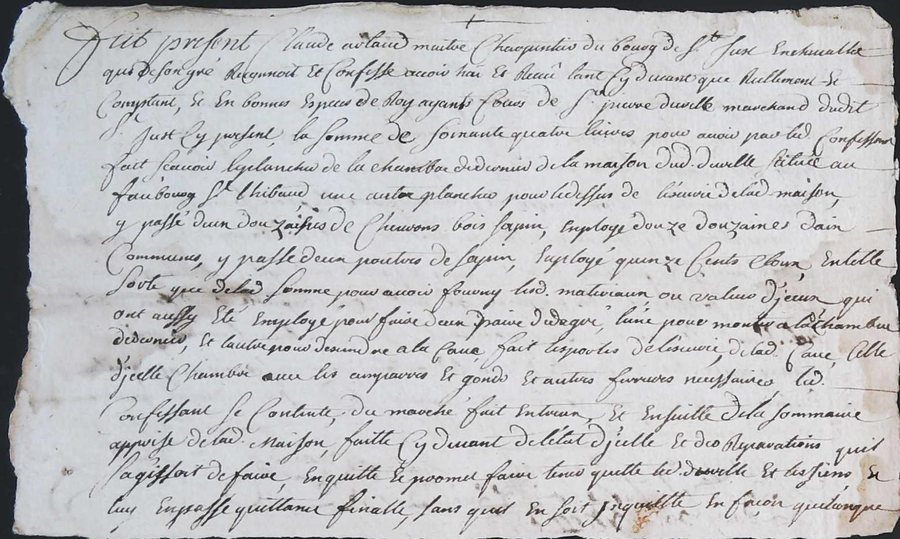 Fut present Claude artaud maitre Charpentier du bourg de St. Just Enchevallet
qui de son gré Reconnoit Et Confesse avoir hai Et Receû tant Cy devant que Reellement Et
Comptant, Et En bonnes Especes de Roy ayants Cours de Sr. duvelle marchand dudit
St. Just Cy present, la somme de, soixante quatre livres pour avoir par led. Confessant
fait scavoir le plancher de la chambre de la maison dud. duvelle Scituée au
faubourg St. Thibaud, une autre plancher pour le dessus de l'écurie de lad. maison,
y passé deux douzaines de Chevrons bois sapin, Employé douze douzaines d'ain
Communes, y passé deux poutres de sapin, Employé quinze Cents Cloux, En telle
sorte que de lad. somme pour avoir fourny led. materiaux ou valeur d'jceux qui
ont aussy Eté Employé pour faire deux paire de degré l'une pour monter a la chambre
Et l'autre pour descendre a la Cave fait les portes de l'écurie, de lad. Cave, Celle
d'jcelle Chambre avec les Et gonds Et autres ferrures necessaires, led.
Confessant se Contente, du marché fait Entreux, Et Ensuitte de la sommaire
apprise de lad. Maison, faitte Cy devant de l'état d'jcelle Et des Reparations qu'il
s'agissoit de faire En quitte Et promet faire tenir quitte led. duvelle Et les siens En
luy En passe quittance finalle, sans qu'il En soit Jnquietté En facon quelconque